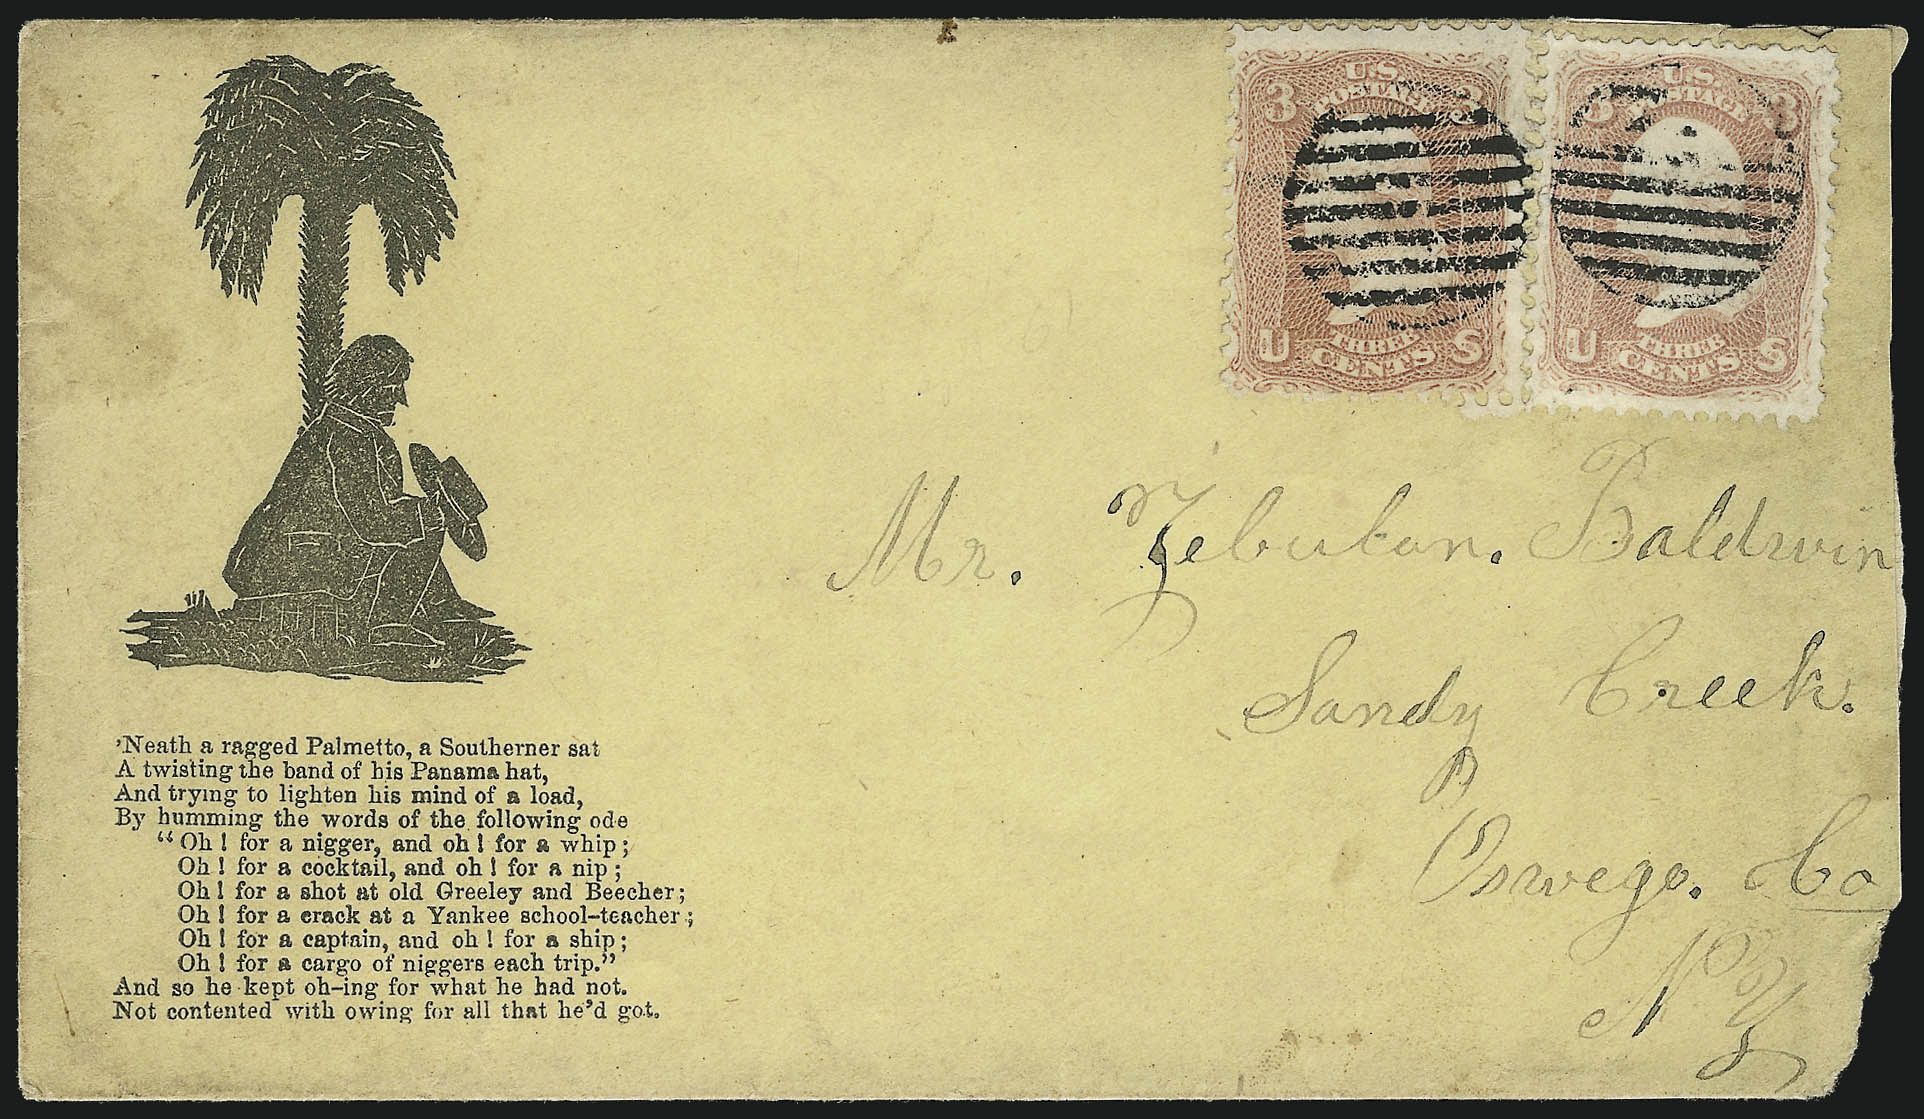 U.S.
POSTAGE
3 3
THREE
CENTS
U S
U.S.
POSTAGE
3 3
THREE
CENTS
U S
Mr. Zebulon. Baldwin
Sandy Creek.
Oswego. Co
N. Y
'Neath a ragged Palmetto, a Southerner sat
A twisting the band of his Panama hat,
And trying to lighten his mind of a load,
By humming the words of the following ode
“Oh ! for a nigger, and oh ! for a whip ;
Oh ! for a cocktail, and oh ! for a nip ;
Oh ! for a shot at old Greeley and Beecher ;
Oh ! for a crack at a Yankee school-teacher ;
Oh ! for a captain, and oh ! for a ship ;
Oh ! for a cargo of niggers each trip.”
And so he kept oh-ing for what he had not.
Not contented with owing for all that he'd got.